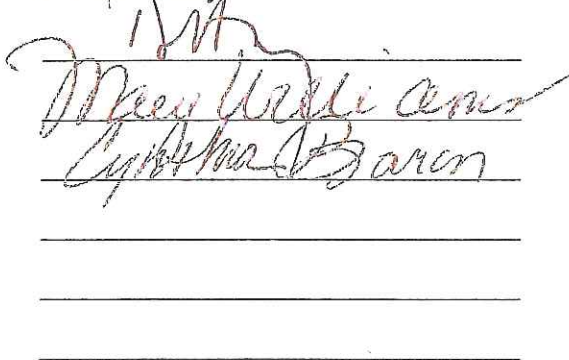 Mary Williams
Cynthia Baron